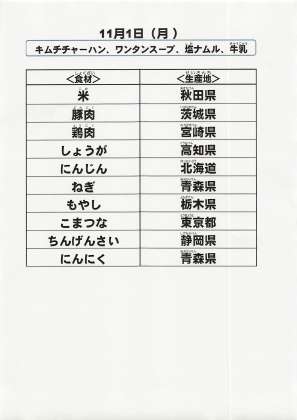 11月1日（月）
キムチチャーハン、ワンタンスープ、塩ナムル、牛乳
＜食材＞ ＜生産地＞
米 秋田県
豚肉 茨城県
鶏肉 宮崎県
しょうが 高知県
にんじん 北海道
ねぎ 青森県
もやし 栃木県
こまつな 東京都
ちんげんさい 静岡県
にんにく 青森県